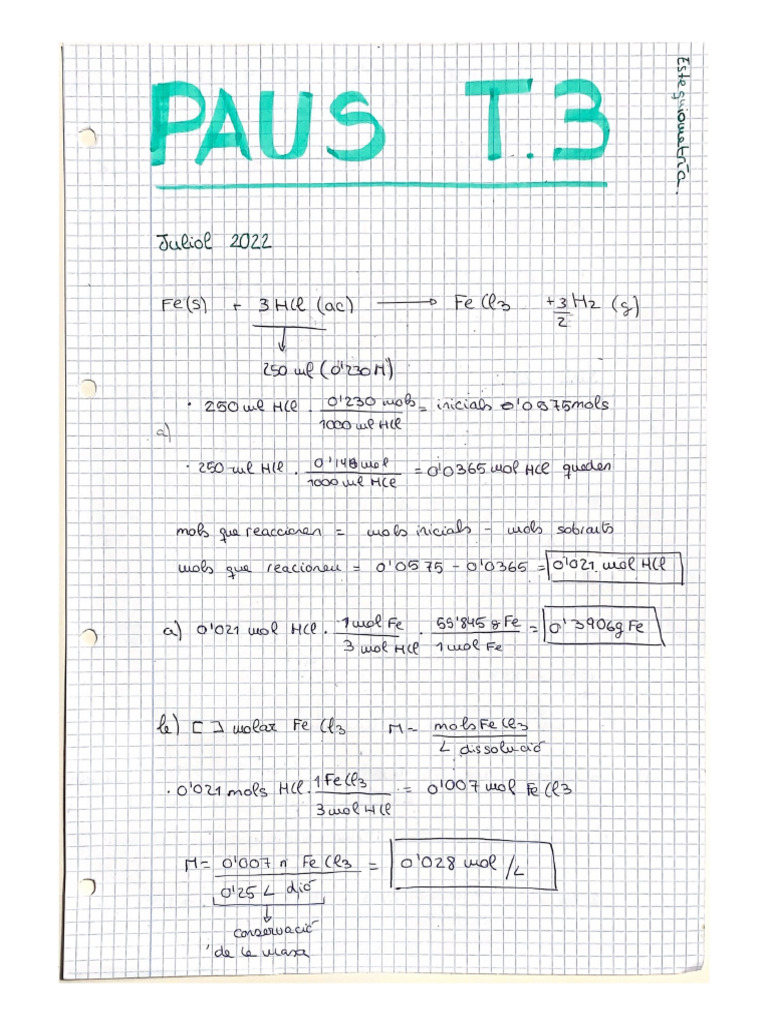 PAUS T.3
Estequiometría.
Juliol 2022
Fe(s) + 3HCl (ac) → FeCl3 + 3/2 H2 (g)
250 ml (0'230M)
· 250 ml HCl · 0'230 mols / 1000 ml HCl = inicials 0'0575 mols
a)
· 250 ml HCl · 0'146 mol / 1000 ml HCl = 0'0365 mol HCl queden
mols que reaccionen = mols inicials - mols sobrants
mols que reacionen = 0'0575 - 0'0365 = 0'021 mol HCl
a) 0'021 mol HCl · 1 mol Fe / 3 mol HCl · 55'845 g Fe / 1 mol Fe = 0'3906g Fe
b) [ ] molar FeCl3 M = mols FeCl3 / L dissolució
· 0'021 mols HCl · 1 FeCl3 / 3 mol HCl = 0'007 mol FeCl3
M = 0'007 n FeCl3 / 0'25 L dió = 0'028 mol/L
conservació
de la massa